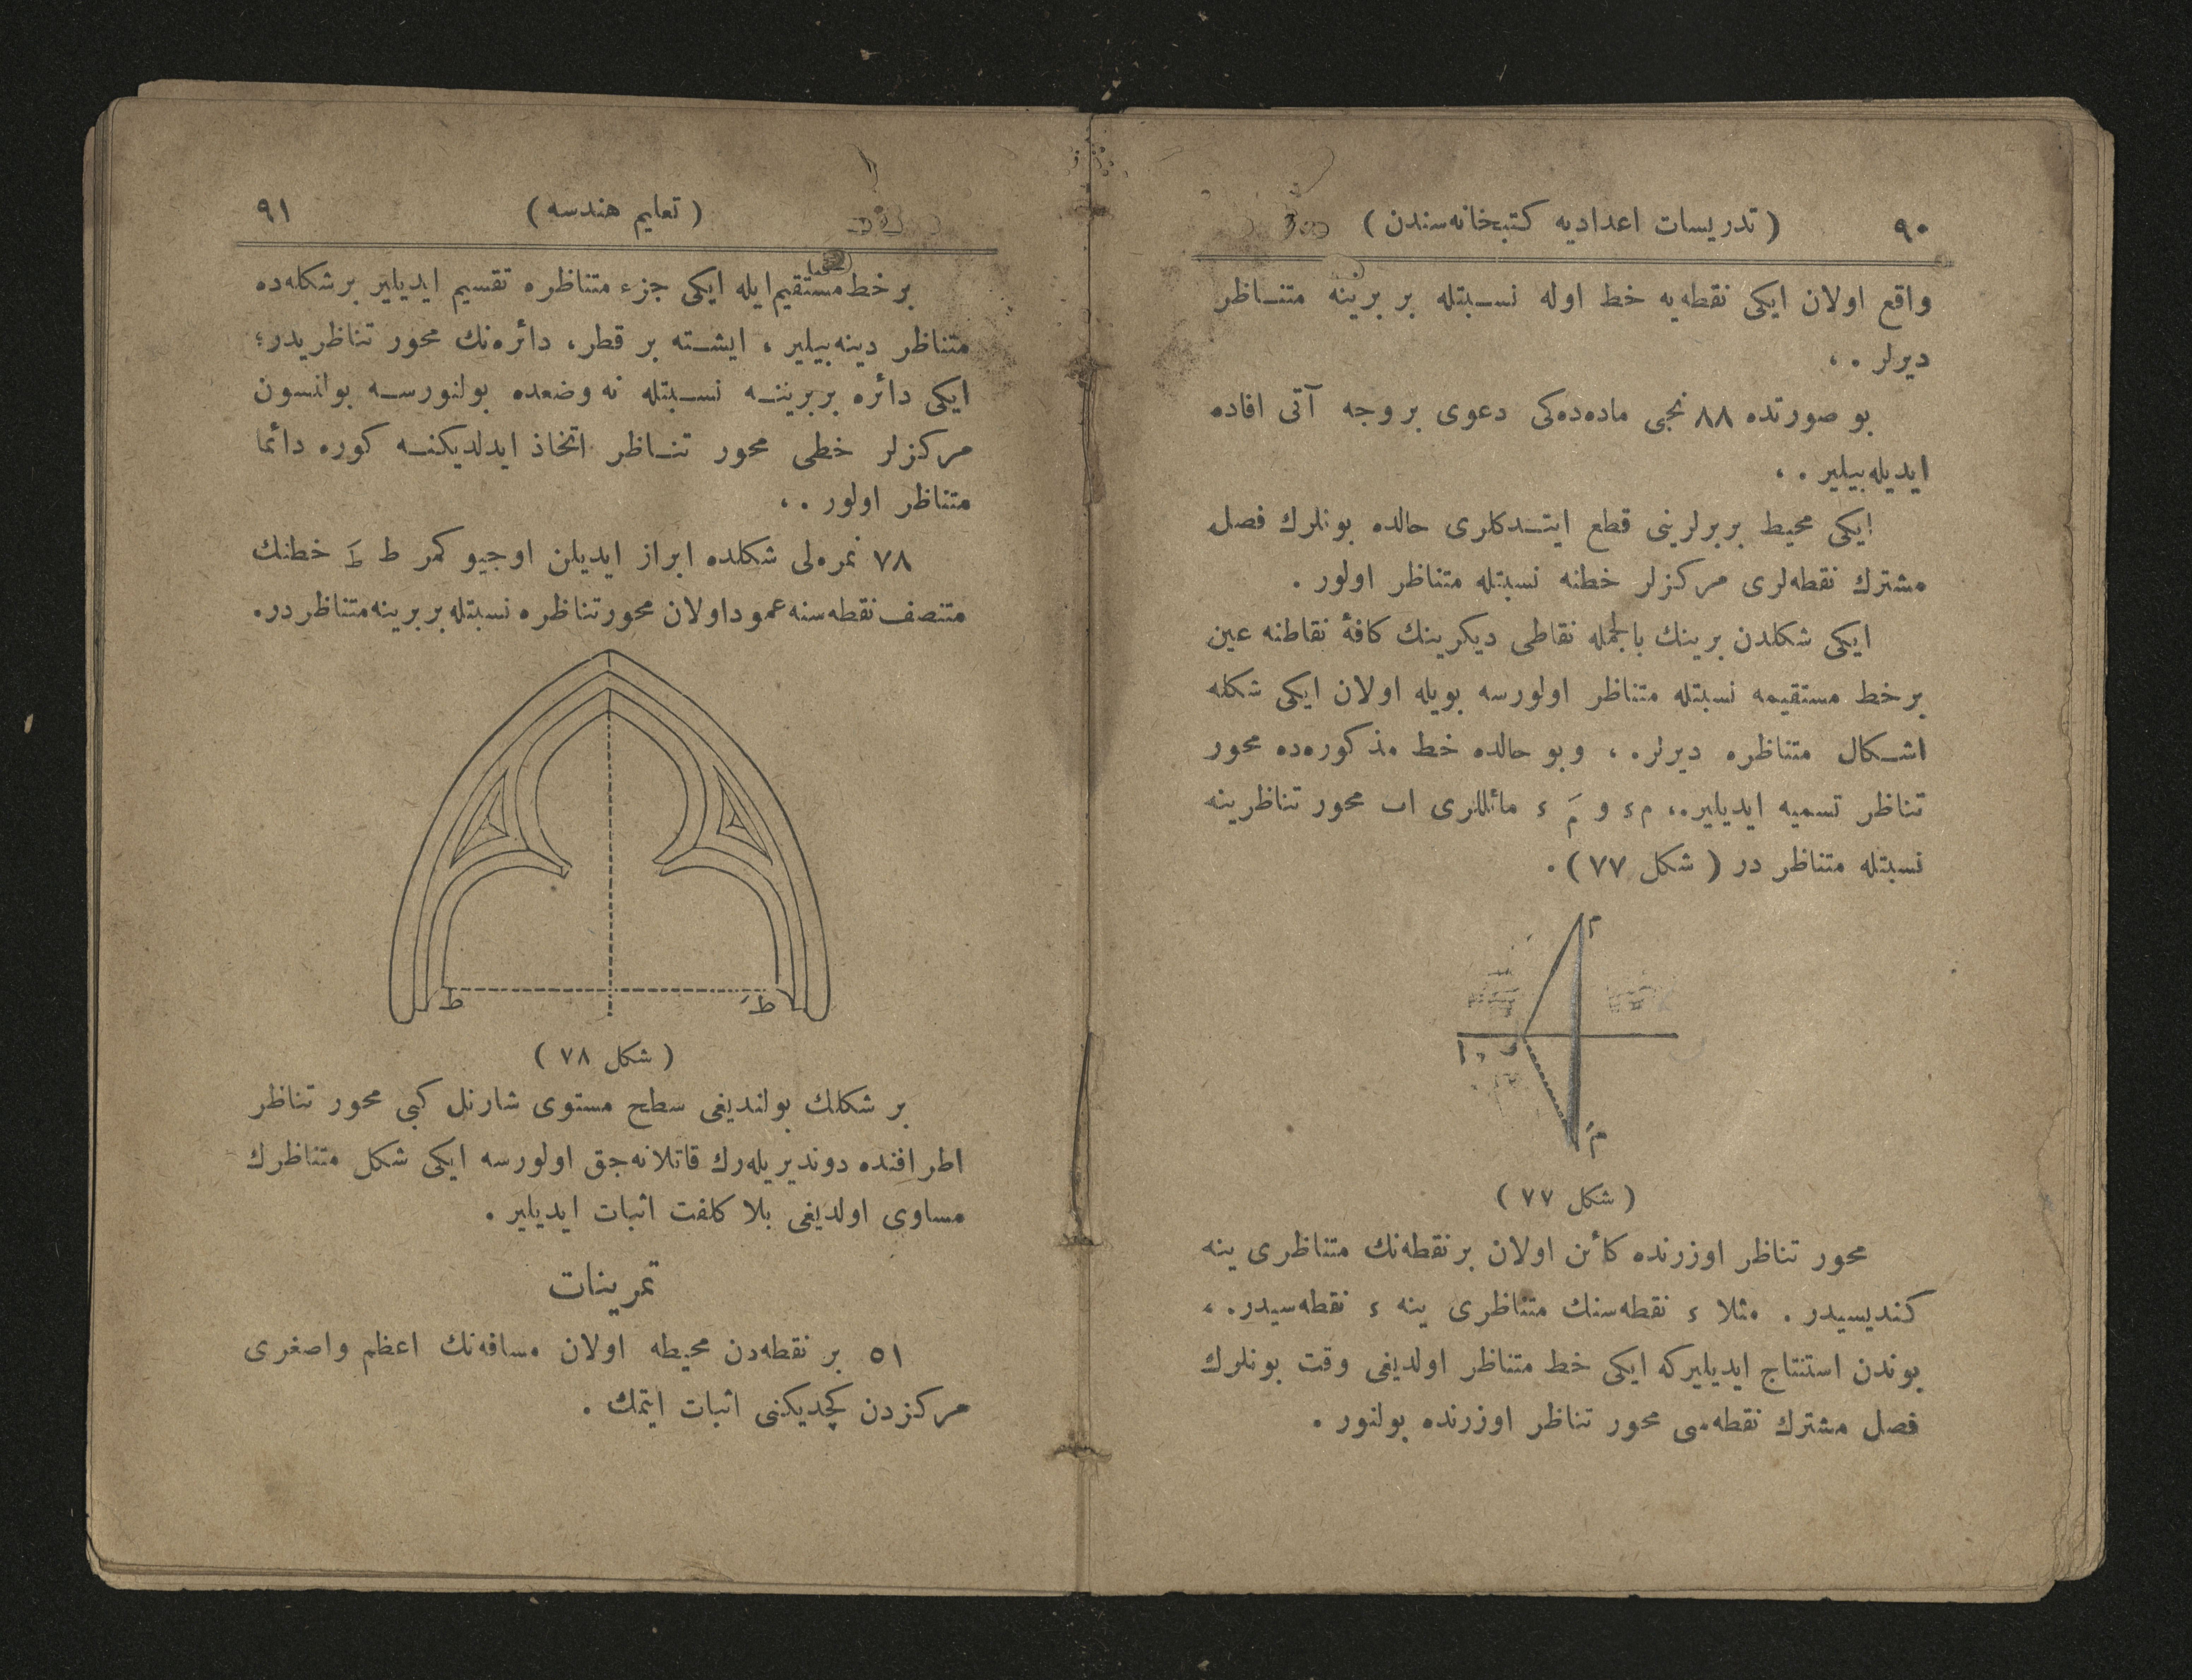 ٩٠ ( تدریسات اعدادیه کتبخانه‌سندن )
واقع اولان ایکی نقطه‌یه خط اوله نسبتله بر برینه متناظر
دیرلر . ،
بو صورتده ٨٨ نجی ماده‌ده‌کی دعوی بروجه آتی افاده
ایدیله بیلیر . ،
ایکی محیط بربرلرینی قطع ایتدکلری حالده بونلرك فصل
مشترك نقطه‌لری مرکزلر خطنه نسبتله متناظر اولور .
ایکی شکلدن برینك بالجمله نقاطی دیکرینك کافهٔ نقاطنه عین
برخط مستقیمه نسبتله متناظر اولورسه بویله اولان ایکی شکله
اشکال متناظره دیرلر. ، وبو حالده خط مذکوره‌ده محور
تناظر تسمیه ایدیلیر.، م ء و مَ ء مائللری اب محور تناظرینه
نسبتله متناظر در ( شکل ٧٧ ) .
م
ا
مَ
( شکل ٧٧ )
محور تناظر اوزرنده کأن اولان برنقطه‌نك متناظری ینه
کندیسیدر . مثلا ء نقطه‌سنك متناظری ینه ء نقطه‌سیدر. ،
بوندن استنتاج ایدیلیرکه ایکی خط متناظر اولدیغی وقت بونلرك
فصل مشترك نقطه‌سی محور تناظر اوزرنده بولنور .
( تعلیم هندسه ) ٩١
برخط مستقیم ایله ایکی جزء متناظره تقسیم ایدیلیر برشکله‌ده
متناظر دینه‌بیلیر ، ایشته بر قطر، دائره‌نك محور تناظریدر؛
ایکی دائره بربرینه نسبتله نه وضعده بولنورسه بولنسون
مرکزلر خطی محور تناظر اتخاذ ایدلدیکنه کوره دائما
متناظر اولور . ،
٧٨ نمره‌لی شکلده ابراز ایدیلن اوجیو کمر ط طَ خطنك
متنصف نقطه‌سنه عمود اولان محور تناظره نسبتله بربرینه متناظردر.
ط طَ
( شکل ٧٨ )
بر شکلك بولندیغی سطح مستوی شارنل کبی محور تناظر
اطرافنده دوندیریله‌رك قاتلانه‌جق اولورسه ایکی شکل متناظرك
مساوی اولدیغی بلا کلفت اثبات ایدیلیر .
تمرینات
٥١ بر نقطه‌دن محیطه اولان مسافه‌نك اعظم واصغری
مرکزدن کچدیکنی اثبات ایتمك .